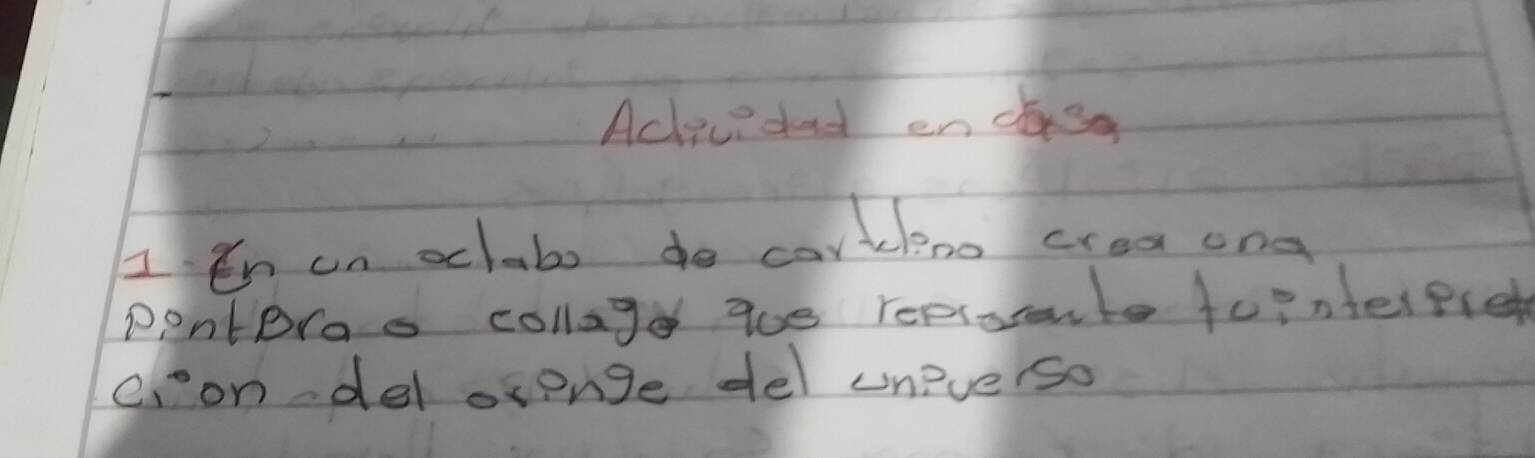 Actividad en casa
1. En un octabo de cartulina crea una
pintura o collage que represente tu interpret
cion del origen del universo